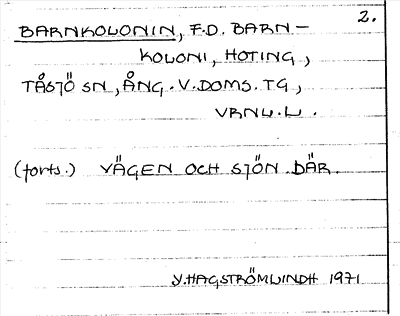 2.
BARNKOLONIN, F.D. BARN-
KOLONI, HOTING,
TÅSJÖ SN, ÅNG. V. DOMS. TG,
VRNL. L.
(forts.) VÄGEN OCH SJÖN DÄR.
Y. HAGSTRÖMLINDH 1971